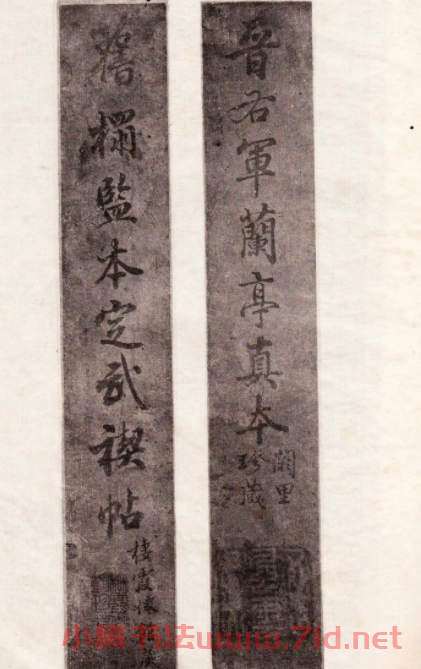 晉右軍蘭亭真本
闕里
珍藏
舊搨監本定武禊帖
棲霞
小腾书法www.71d.net